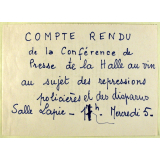 COMPTE RENDU
de la Conférence de
Presse de la Halle au vin
au sujet des repressions
policières et des disparus
Salle Lapie - h. Mercredi 5-